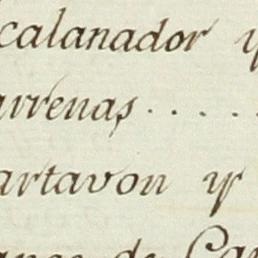 calanador y
arrenas . . . .
artavon y
de Ca